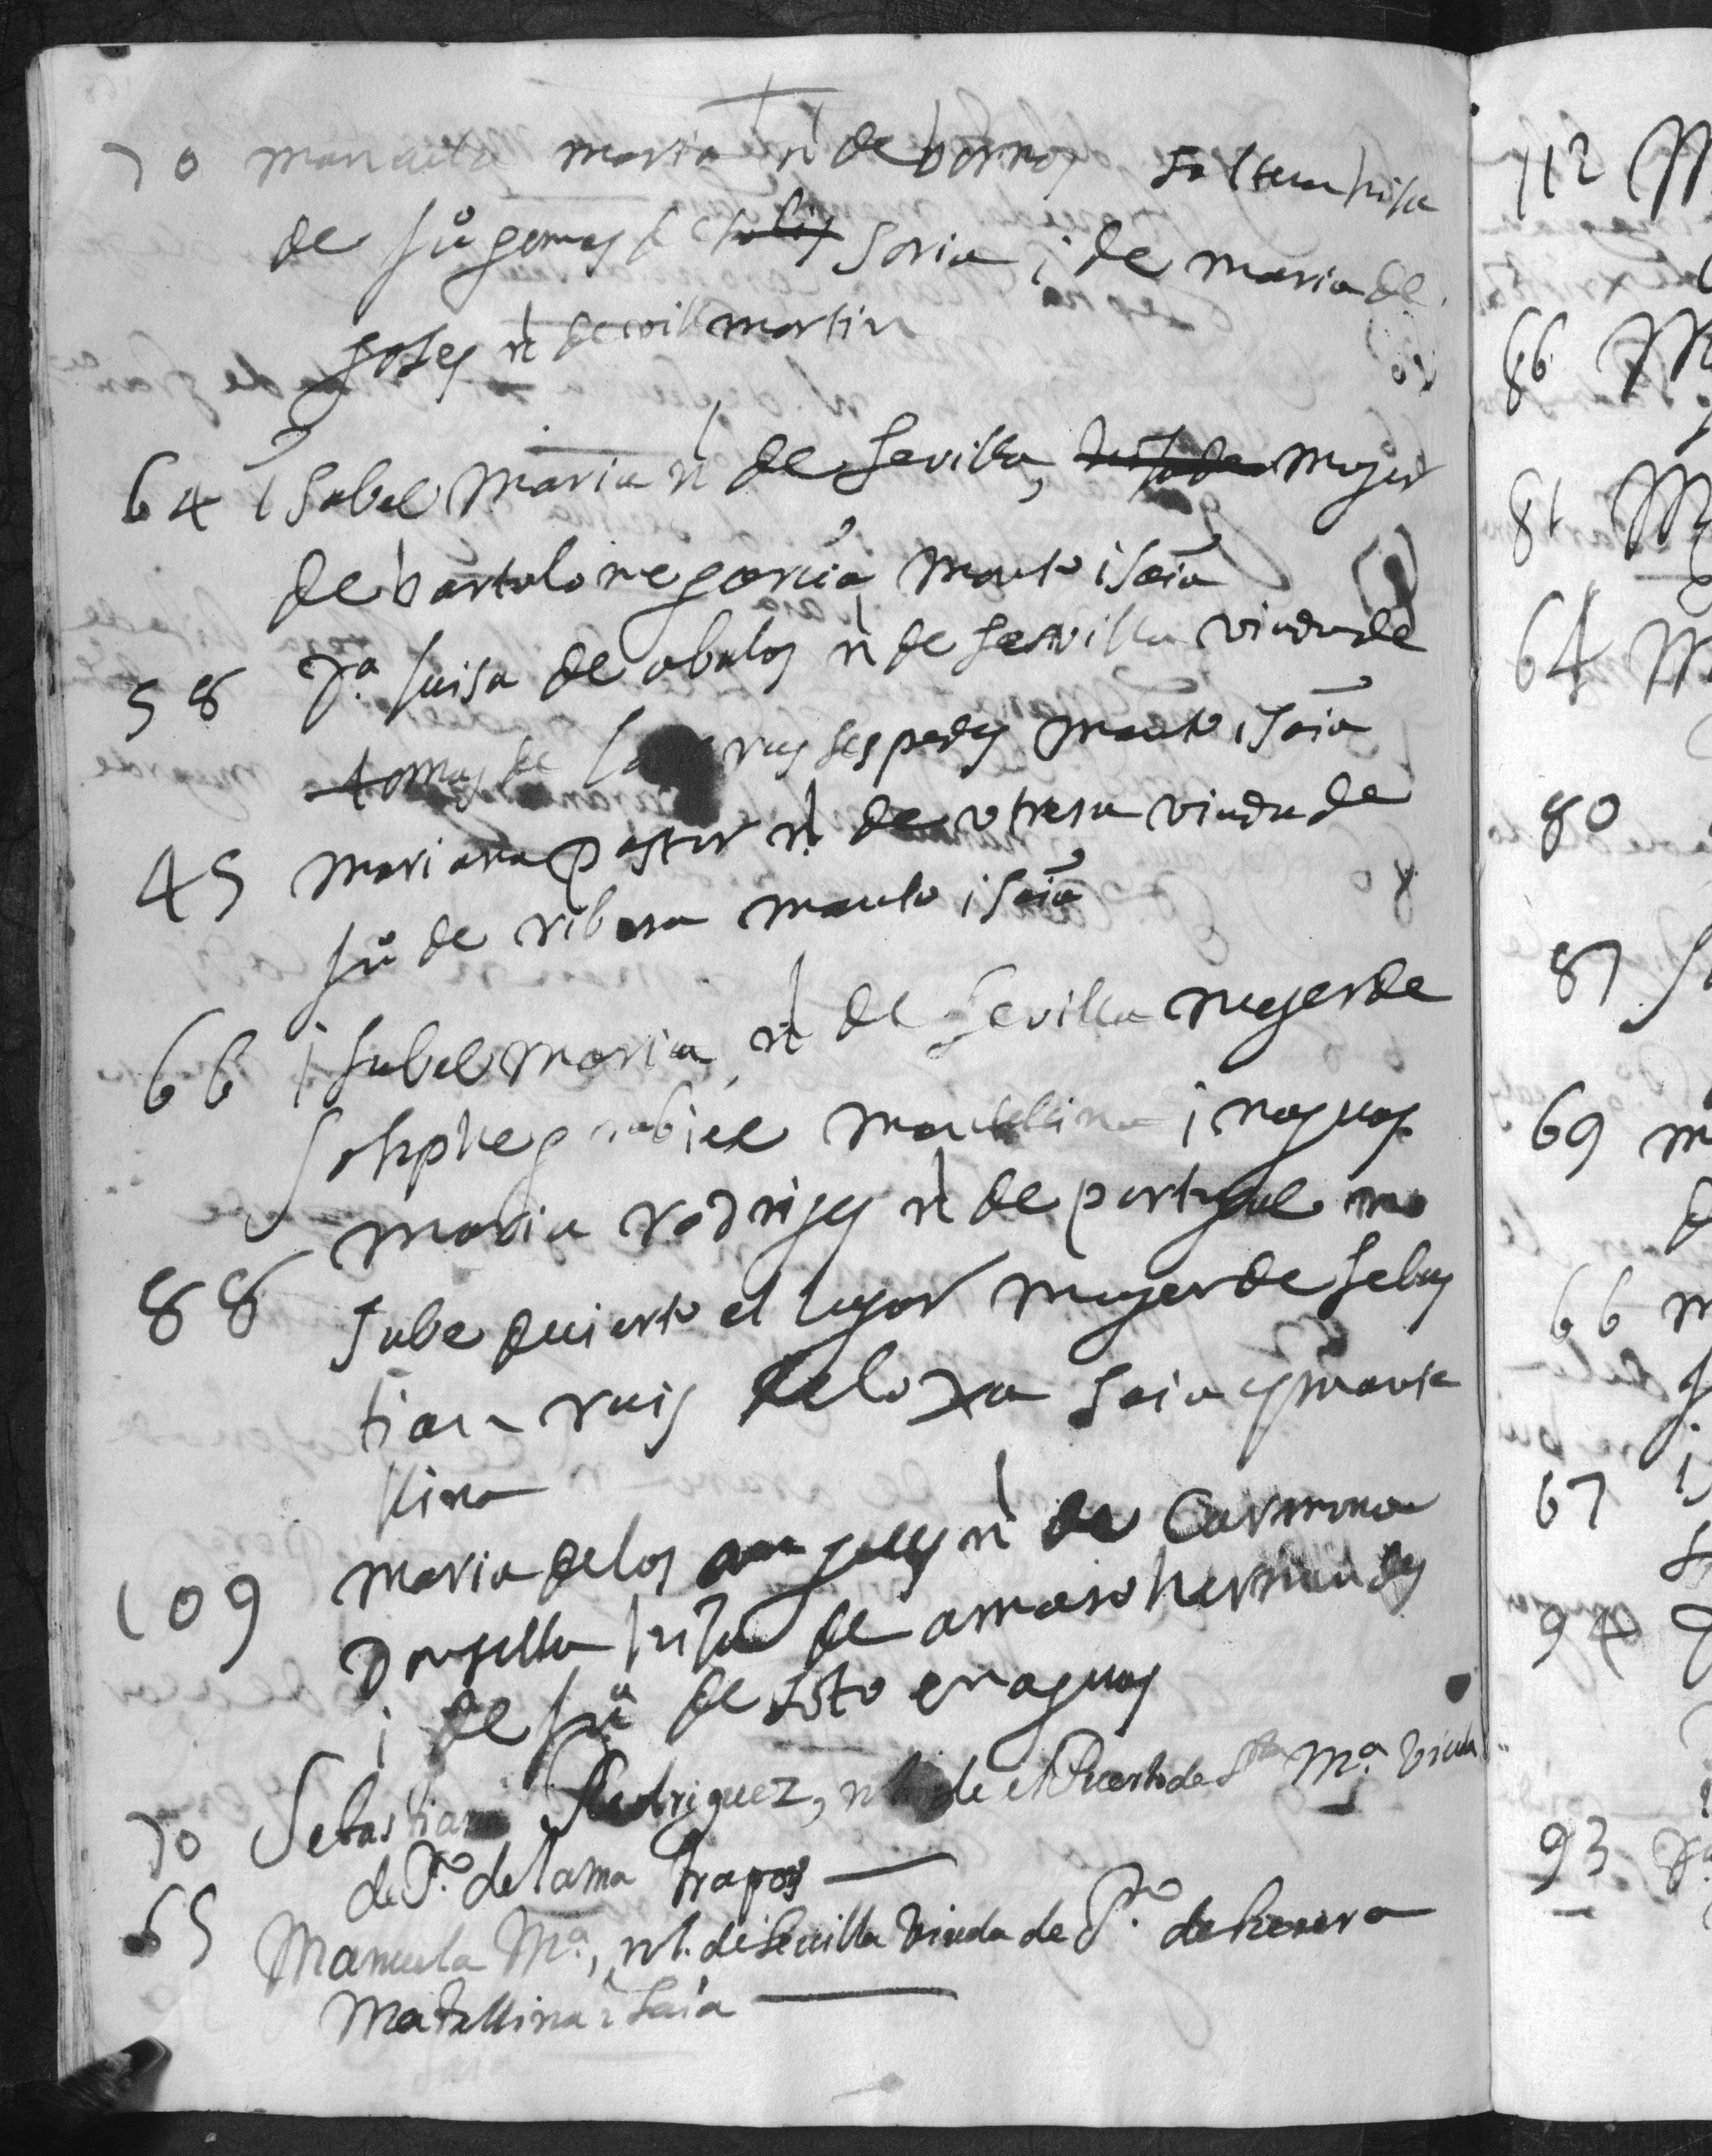 70 manuela maria nl de bornos soltera hija
de juº gomes de soria i de maria de
goles nl de villmartin
64 isabel maria nl de sevilla, muger
de bartolome garcia manto i saia
58 Dª luisa de abalos nl de sevilla viuda de
tomas de la sespedes manto i saia
45 mariana pastor nl de utrera viuda de
juº de ribera manto i saia
66 isabel maria nl de sevilla muger de
Joseph grabiel mantellina i naguas
maria rodriges nl de portugal no
88 sabe quierto el lugar muger de sebas
tian ruis de loxa saia y mante
llina
109 maria de los angeles nl de Carmona
Donsella hija de amaro hernandes
i de juª de soto enaguas
70 Sebastiana Rodriguez, nl de el Puerto de Sta Mª. Viuda
de Pº. de lama trapos
65 Manuela Mª, nl. de Sevilla Viuda de Pº de herera
Matellina i saia
112 M
86 M
81 M
64 M
80
87
69 m
66 m
67
94
93